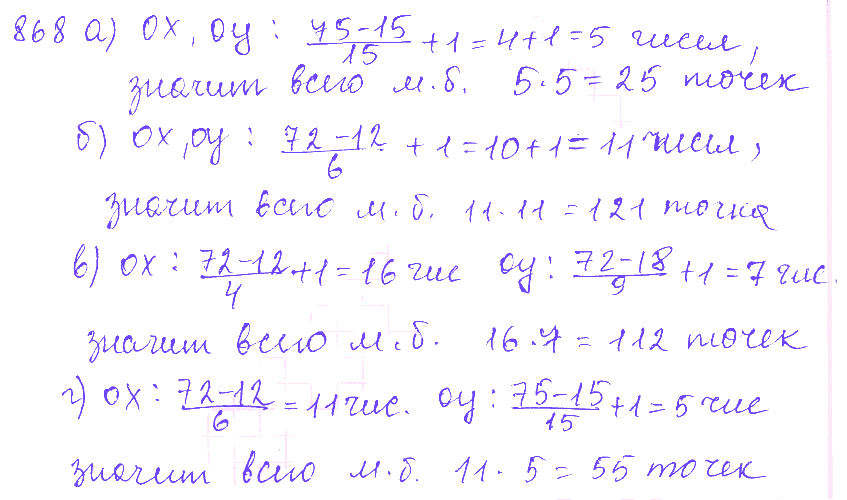 868 а) ОХ, ОУ : (75-15)/15 + 1 = 4+1 = 5 чисел,
значит всего м.б. 5·5 = 25 точек
б) ОХ, ОУ : (72-12)/6 + 1 = 10+1 = 11 чисел,
значит всего м.б. 11·11 = 121 точка
в) ОХ : (72-12)/4 + 1 = 16 чис ОУ : (72-18)/9 + 1 = 7 чис.
значит всего м.б. 16·7 = 112 точек
г) ОХ : (72-12)/6 = 11 чис. ОУ : (75-15)/15 + 1 = 5 чис
значит всего м.б. 11·5 = 55 точек